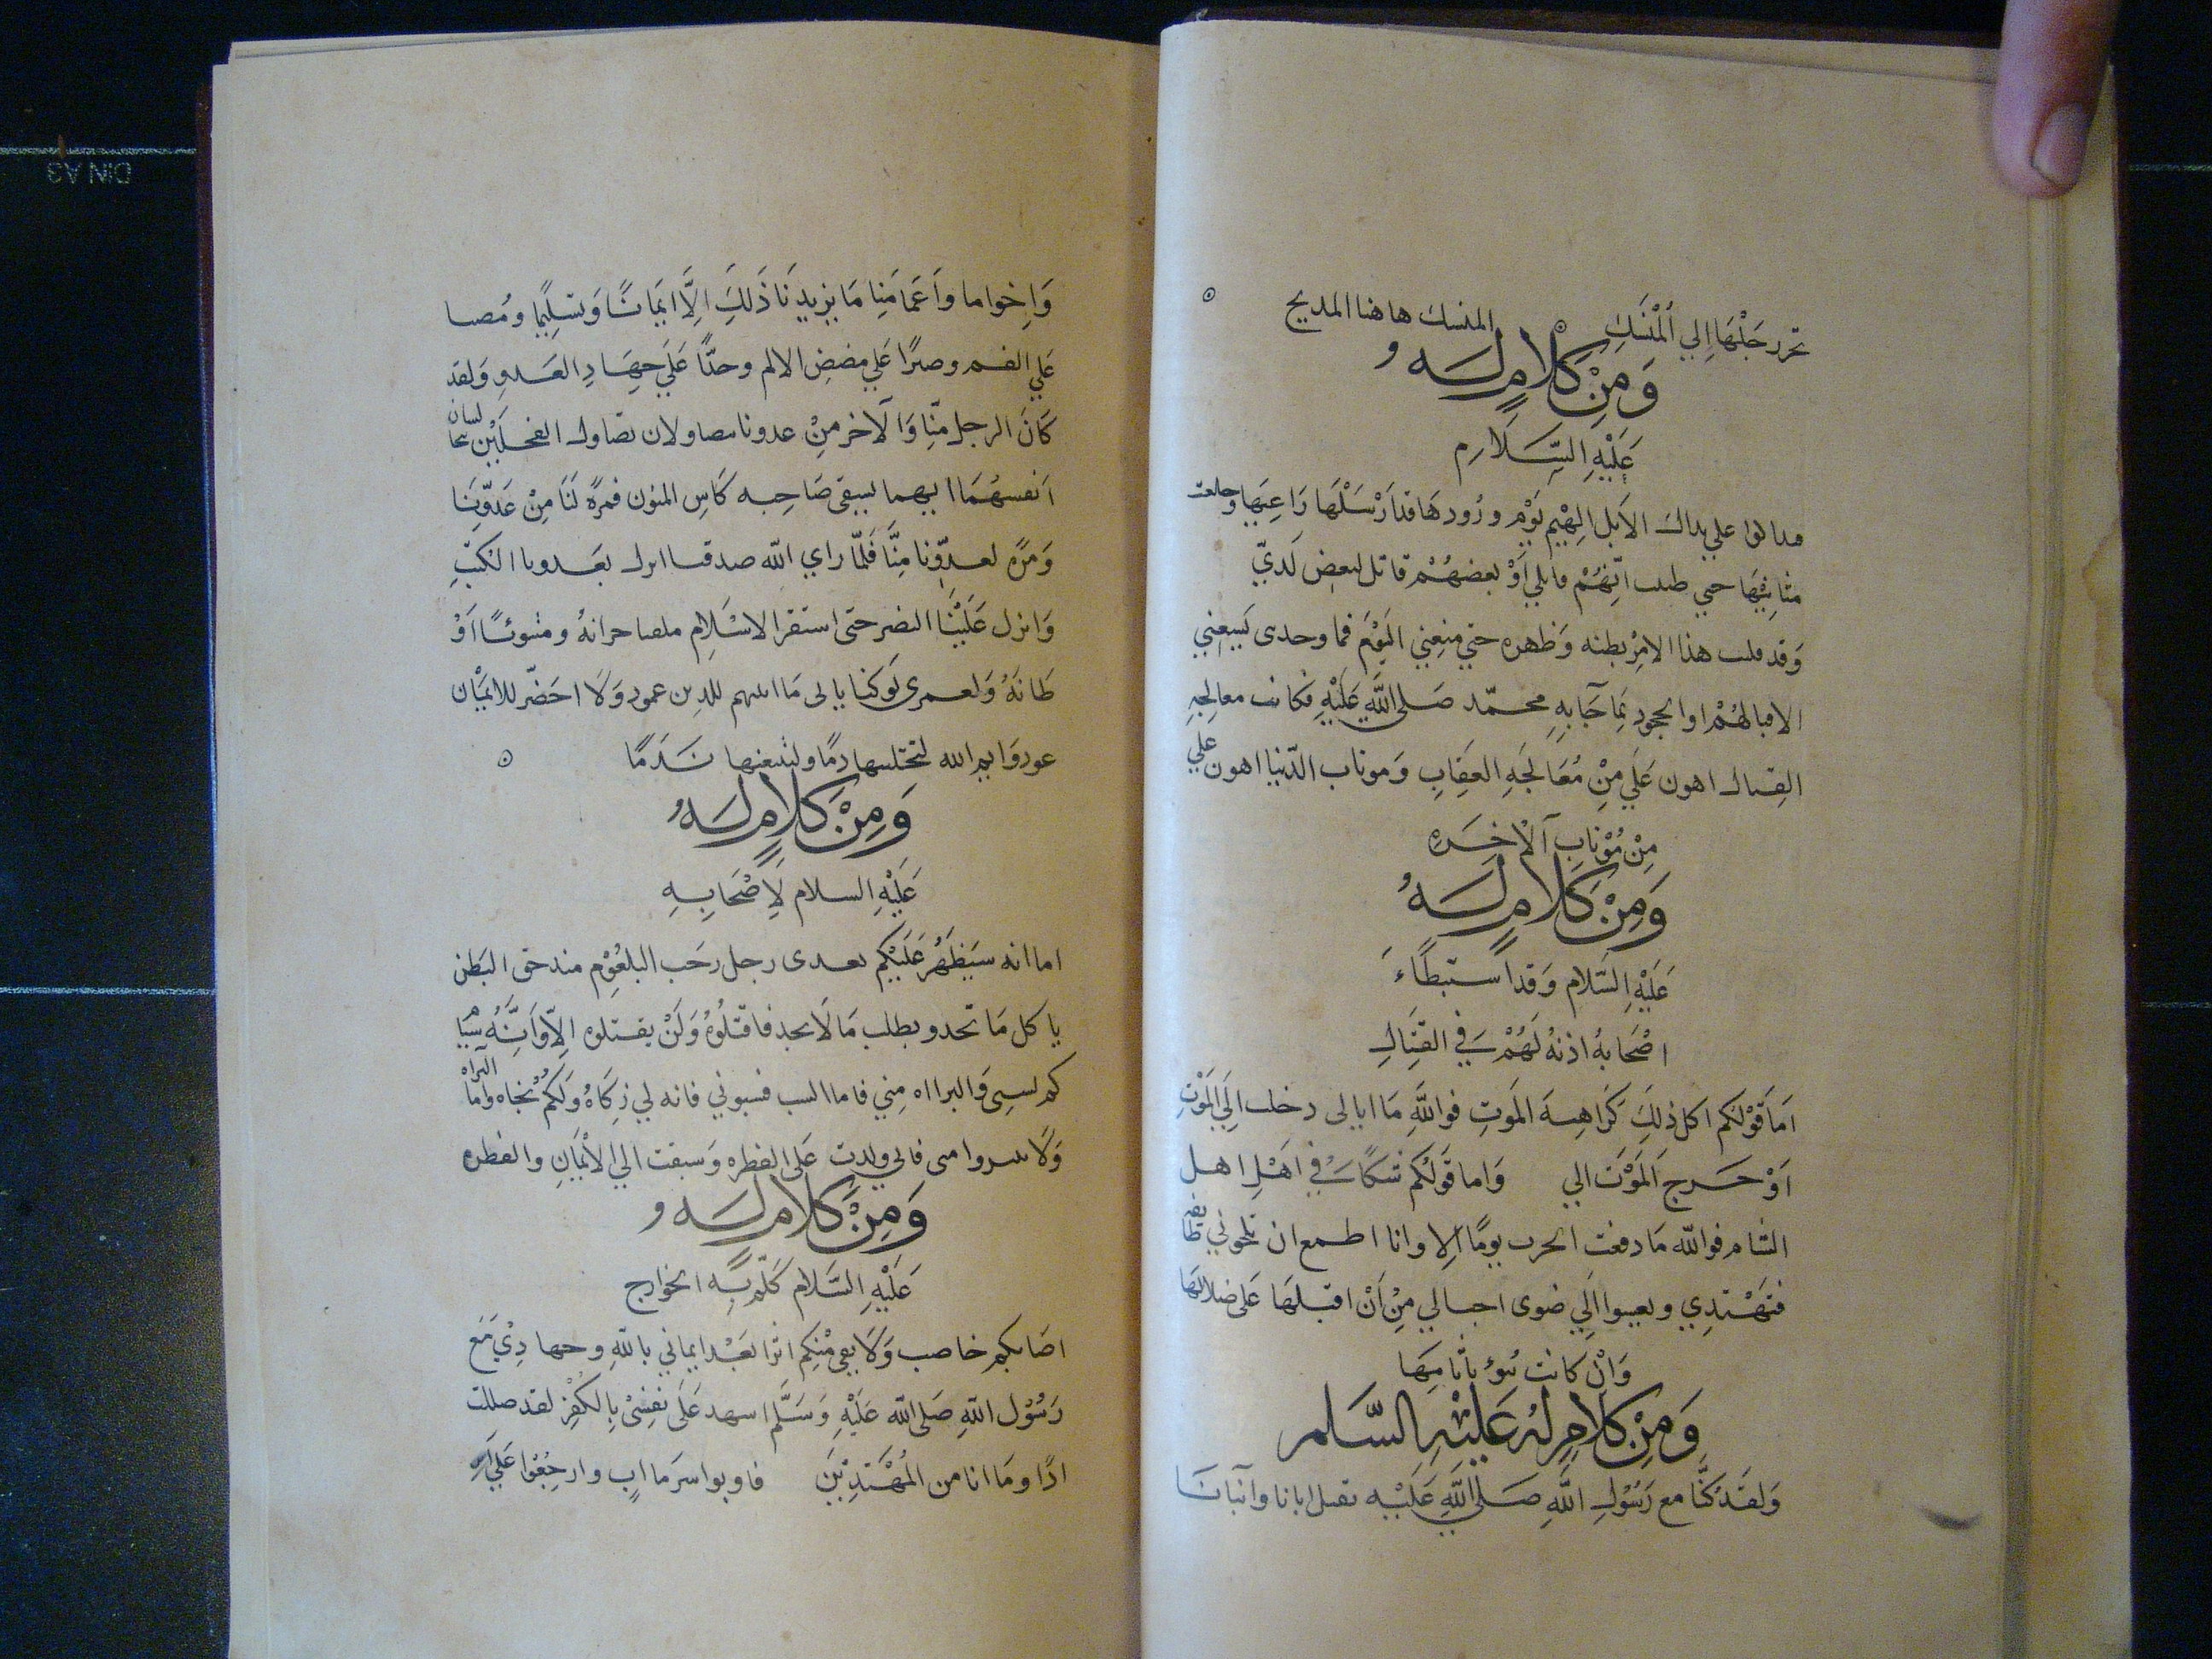 تجر رجلها الي المنسك المنسك هاهنا المذبح
وَمِنْ كَلامٍ لَهُ
عَلَيْهِ السَّلَام
علي بداك الابل الهيم يَوْم ورودها قد اَرْسَلْهَا رَاعِيَها وخلعت
مثانيها حتي طننت انهم قاتلي اَوْ بعضهُمْ قاتل لبعض لديّ
وَقد قلبت هذا الامر بطنه وَظهره حتي منعني النوم فما وجدتني يسعني
الا قتالهُمْ او الجحود بمَا جَآ بِهِ محمّد صَلى اللَّه عَلَيْهِ فكانت معالجه
القتال اهون عَلَي مِنْ مُعَالجَهِ العِقَابِ وَموتات الدّنيا اهون علي
مِنْ مُوْتات الْاخِرَه
وَمِنْ كَلامٍ لَهُ
عَلَيْهِ السَّلام وَقد استبطَاءَ
اصْحَابهُ اذنهُ لَهُمْ في القتَالِ
اَمَا قَوْلكم اكل ذلِكَ كَرَاهِيَه المَوتِ فوالله مَا ابالي دخلت اِلَي المَوْتِ
اَوْ خَرج المَوْت الي وَاما قَولكُم شكا في اَهْلِ اهل
الشام فوالله مَا دفعت الحرب يومًا الا وانا اطمع ان تلحق بي طايفه
فتهْتدِي بي وتعشوا اِلَي ضوئي احب الي مِنْ اَنْ اقتلهَا عَلى ضلالها
وَانْ كانت تبوء باثامِهَا
وَمِنْ كَلامٍ لَهُ عَلَيْهِ السَّلم
وَلقَدْ كُنَّا مع رَسُوْل اللَّهِ صَلى اللَّه عَلَيْه نقتل ابانا وابنانَا
وَاِخواننا وَاَعمَامَنا مَا يزيدنَا ذَلكَ اِلَّا ايمَانًا وَتسْليمًا ومُضيا
عَلي اللقم وصبرًا عَلي مضض الالم وجدًّا عَلَي جهَادِ العَدو وَلقد
كَانَ الرجل مِنَّا وَالْاخر مِنْ عدونا يتصاولان تصاول الفحلَيْن يتخالسان
اَنفسهُمَا ايهما يسقي صَاحِبه كَاس المنون فمرةً لَنَا مِنْ عَدوّنَا
وَمرة لعدوّنا مِنَّا فَلمّا راي الله صدقنا انزل بعَدونا الكبت
وَانزل عَلَيْنَا النصر حتى استقر الاسْلام ملقيا جرانهُ ومتبوئًا اَوْ
طَانَهُ وَلعمري لَو كنا ناتي مَا اتيتم للدين عمود وَلَا اخضرّ للايمَان
عود وَايم الله لتحتلبنها دمًا ولتتبعنها ندَمًا
وَمِنْ كَلامٍ لَهُ
عَلَيْهِ السلام لِاَصْحَابِهِ
اما انه سَيَظهَرُ عَلَيْكم بعدي رجل رَحب البلعُوْم مندحق البَطن
ياكل مَا يجد ويطلب مَا لَا يجد فاقتلُوْهُ وَلَنْ تقتلوه الا وَاَنَّهُ سيا
كم بسبي وَالبراه مِني فاما السب فسبوني فانه لي زكَاهٌ وَلكُمْ نجاه واما البراه
وَلَا تتبروا مني فاني ولدت عَلي الفطره وَسبقت الي الْايمَانِ والهجره
وَمِنْ كَلامٍ لَهُ
عَلَيْهِ السَّلام كَلّم بِه الخوارج
اصَابكم حاصب وَلَا بقي مِنْكم اثر ابَعْد ايماني باللهِ وجهادِيْ مَع
رَسُوْل اللهِ صَلى الله عَلَيْهِ وَسَلَّم اشهد عَلَى نفسِيْ بالكُفْر لقد ضللت
اذًا ومَا انا من المُهْتدِيْنَ فاوبوا شر مَاب وارجعُوْا عَلي اثر